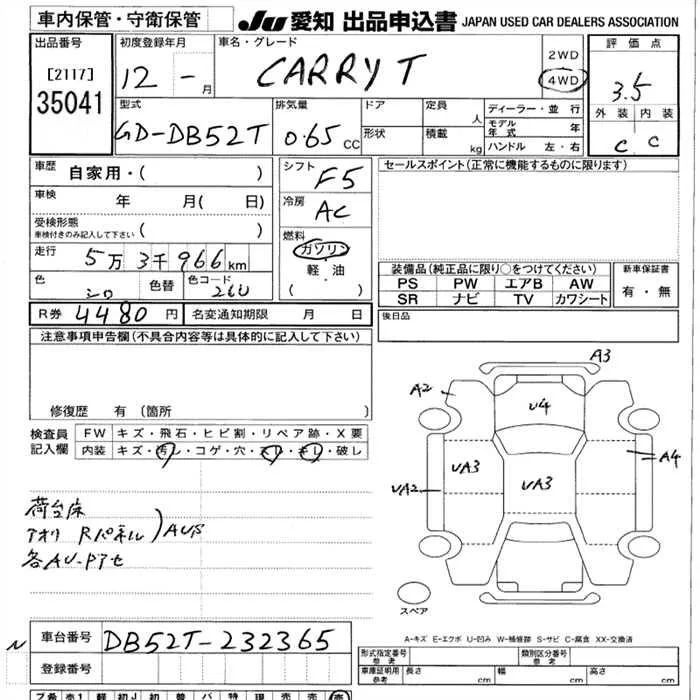 車内保管・守衛保管
JU 愛知 出品申込書 JAPAN USED CAR DEALERS ASSOCIATION
出品番号
[2117]
35041
初度登録年月
12 - 月
車名・グレード
CARRY T
2WD
4WD
評価点
3.5
外装 内装
C C
型式
GD-DB52T
排気量
0.65 CC
ドア
形状
定員
人
積載
kg
ディーラー・並行
モデル年式 年
ハンドル 左・右
車歴 自家用・( )
車検 年 月( 日)
受検形態
車検付きのみ記入して下さい ( )
走行 5万 3千 966 km
色 シロ 色替 色コード 26U
シフト
F5
冷房
AC
燃料
ガソリン
軽・油
( )
セールスポイント(正常に機能するものに限ります)
装備品(純正品に限り○をつけてください)
PS PW エアB AW
SR ナビ TV カワシート
新車保証書
有・無
R券 4480 円 名変通知期限 月 日
後日品
注意事項申告欄(不具合内容等は具体的に記入して下さい)
修復歴 有 (箇所 )
検査員記入欄
FW キズ・飛石・ヒビ割・リペア跡・X要
内装 キズ・汚レ・コゲ・穴・スレ・キレ・破レ
荷台床
アオリ Rパネル ) AUB
各AU・Pアセ
A3
A2
U4
UA3
A4
UA2
UA3
スペア
A-キズ E-エクボ U-凹み W-補修跡 S-サビ C-腐食 XX-交換済
N 車台番号 DB52T-232365
登録番号
形式指定番号
参考
類別区分番号
参考
車庫証明用
参考
長さ cm 幅 cm 高さ cm